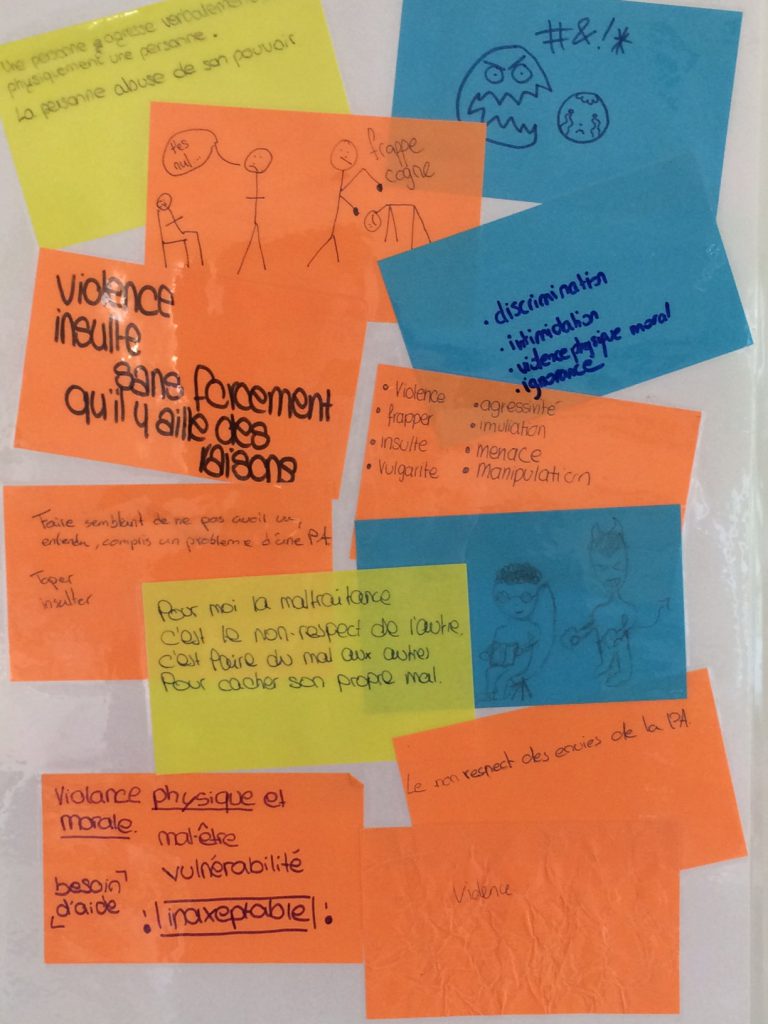 Une personne agresse verbalement
physiquement une personne.
La personne abuse de son pouvoir
#&!*
t'es
nul...
frappe
cogne
• discrimination
• intimidation
• violence physique moral
• ignorance
violence
insulte
sans forcement
qu'il y aille des
raisons
• Violence
• frapper
• insulte
• Vulgarite
• agressivité
• imuliation
• menace
• manipulation
Faire semblant de ne pas avoir vu,
entendu, compris un probleme d'une PA
Taper
insulter
Pour moi la maltraitance
c'est le non-respect de l'autre.
c'est faire du mal aux autres
Pour cacher son propre mal.
Le non respect des envies de la PA.
Violance physique et
morale.
mal-être
vulnérabilité
besoin
d'aide
!inaxeptable!
Violence